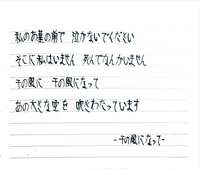 私のお墓の前で 泣かないでください
そこに私はいません 死んでなんかいません
千の風に 千の風になって
あの大きな空を 吹きわたっています
-千の風になって-